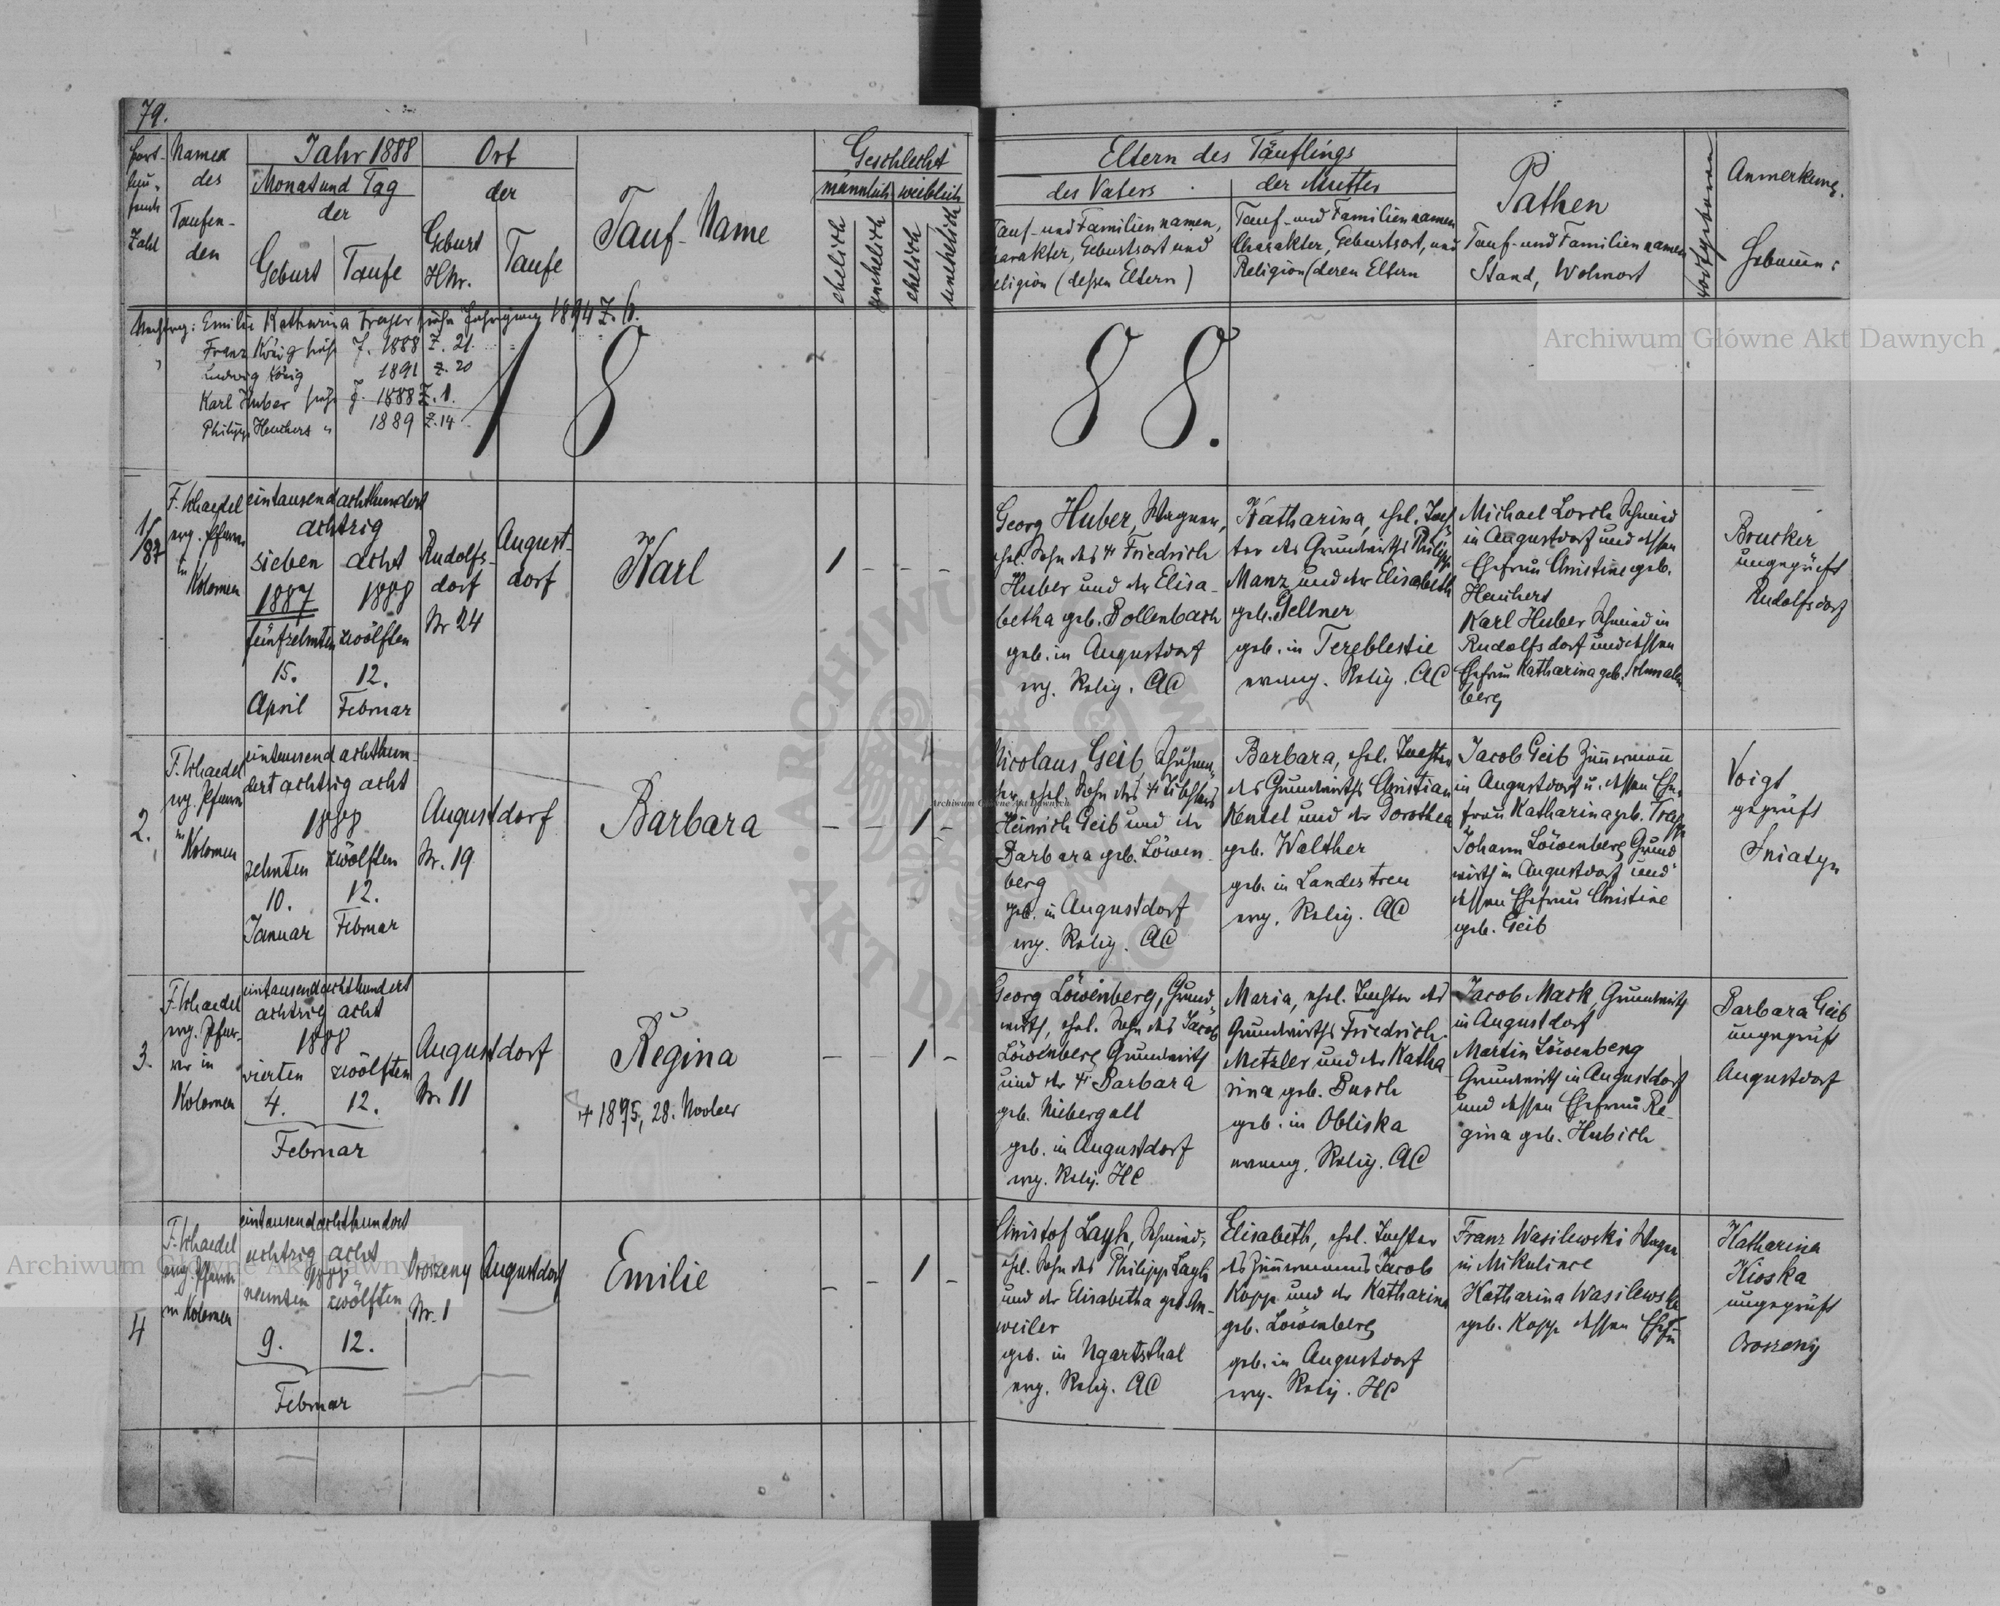 79.
Fort-
lau-
fende
Zahl
Namen
des
Taufen-
den
Jahr 1888
Monat und Tag
der
Geburt
Taufe
Ort
der
Geburt
HNr.
Taufe
Tauf-Name
Geschlecht
männlich
weiblich
ehelich
unehelich
ehelich
unehelich
Eltern des Täuflings
des Vaters
der Mutter
Tauf- und Familiennamen,
Charakter, Geburtsort und
Religion (dessen Eltern)
Tauf- und Familiennamen
Charakter, Geburtsort, und
Religion (deren Eltern
Pathen
Tauf- und Familiennamen
Stand, Wohnort
Anmerkung.
Hebamme:
Nachtrg: Emilie Katharina Trajer siehe Jahrgang 1894 Z. 6.
" Franz König siehe J. 1888 Z. 21.
Ludwig König 1891 Z. 20
Karl Huber siehe J. 1888 Z. 1.
Philipp Heuchert " 1889 Z. 14
1888.
1/87
F. Schaedel
evg. Pfarrer
in
Kolomea
eintausendachthundert
achtzig
sieben
1887
fünfzehnten
15.
April
acht
1888
zwölften
12.
Februar
Rudolfs-
dorf
Nr 24
August-
dorf
Karl
1 - - -
Georg Huber, Wagner,
ehel. Sohn des + Friedrich
Huber und der Elisa-
betha geb. Bollenbach
geb. in Augustdorf
evg. Relig. AC
Katharina, ehel. Toch-
ter des Grundwirths Philipp
Manz und der Elisabeth
geb. Gellner
geb. in Tereblestie
evang. Relig. AC
Michael Lorch Schmied
in Augustdorf und dessen
Ehefrau Christine geb.
Heuchert
Karl Huber Schmied in
Rudolfsdorf und dessen
Ehefrau Katharina geb. Schmalen
berg
Brucker
ungeprüft
Rudolfsdorf
2.
F. Schaedel
evg. Pfarrer
in
Kolomea
eintausend achthun-
dert achtzig acht
1888
zehnten
10.
Januar
zwölften
12.
Februar
Augustdorf
Nr. 19
Barbara
- - 1 -
Nicolaus Geib
ehel. Sohn des +
Heinrich Geib und der
Barbara geb. Löwen-
berg
geb. in Augustdorf
evg. Relig. AC
Barbara, ehel. Tochter
des Grundwirths Christian
Kentel und der Dorothea
geb. Walther
geb. in Landestreu
evg. Relig. AC
Jacob Geib Zimmermann
in Augustdorf u. dessen Ehe-
frau Katharina geb. Trapp
Johann Löwenberg Grund-
wirth in Augustdorf und
dessen Ehefrau Christine
geb. Geib
Voigt
geprüft
Sniatyn
3.
F. Schaedel
evg. Pfar-
rer in
Kolomea
eintausendachthundert
achtzig acht
1888
vierten
4.
zwölften
12.
Februar
Augustdorf
Nr. 11
Regina
+ 1895, 28. November
- - 1 -
Georg Löwenberg, Grund-
wirth, ehel. Sohn des Jacob
Löwenberg Grundwirth
und der + Barbara
geb. Niebergall
geb. in Augustdorf
evg. Relig. HC
Maria, ehel. Tochter des
Grundwirths Friedrich
Metzler und der Katha
rina geb. Busch
geb. in Obliska
evang. Relig. AC
Jacob Mack, Grundwirth
in Augustdorf
Martin Löwenberg
Grundwirth in Augustdorf
und dessen Ehefrau Re-
gina geb. Hubich
Barbara Geib
ungeprüft
Augustdorf
4
F. Schaedel
evg. Pfarrer
in Kolomea
eintausendachthundert
achtzig acht
1888
neunten
9.
zwölften
12.
Februar
Oroszeny
Nr. 1
Augustdorf
Emilie
- - 1 -
Christof Layh, Schmied,
ehel. Sohn des Philipp Layh
und der Elisabetha geb. An-
weiler
geb. in Ugartsthal
evg. Relig. AC
Elisabeth, ehel. Tochter
des Zimmermanns Jacob
Kopp und der Katharina
geb. Löwenberg
geb. in Augustdorf
evg. Relig. HC
Franz Wasilewski Wagner
in Mikulince
Katharina Wasilewska
geb. Kopp dessen Ehefrau
Katharina
Kioska
ungeprüft
Oroszeny
Archiwum Główne Akt Dawnych
Archiwum Główne Akt Dawnych
Archiwum Główne Akt Dawnych